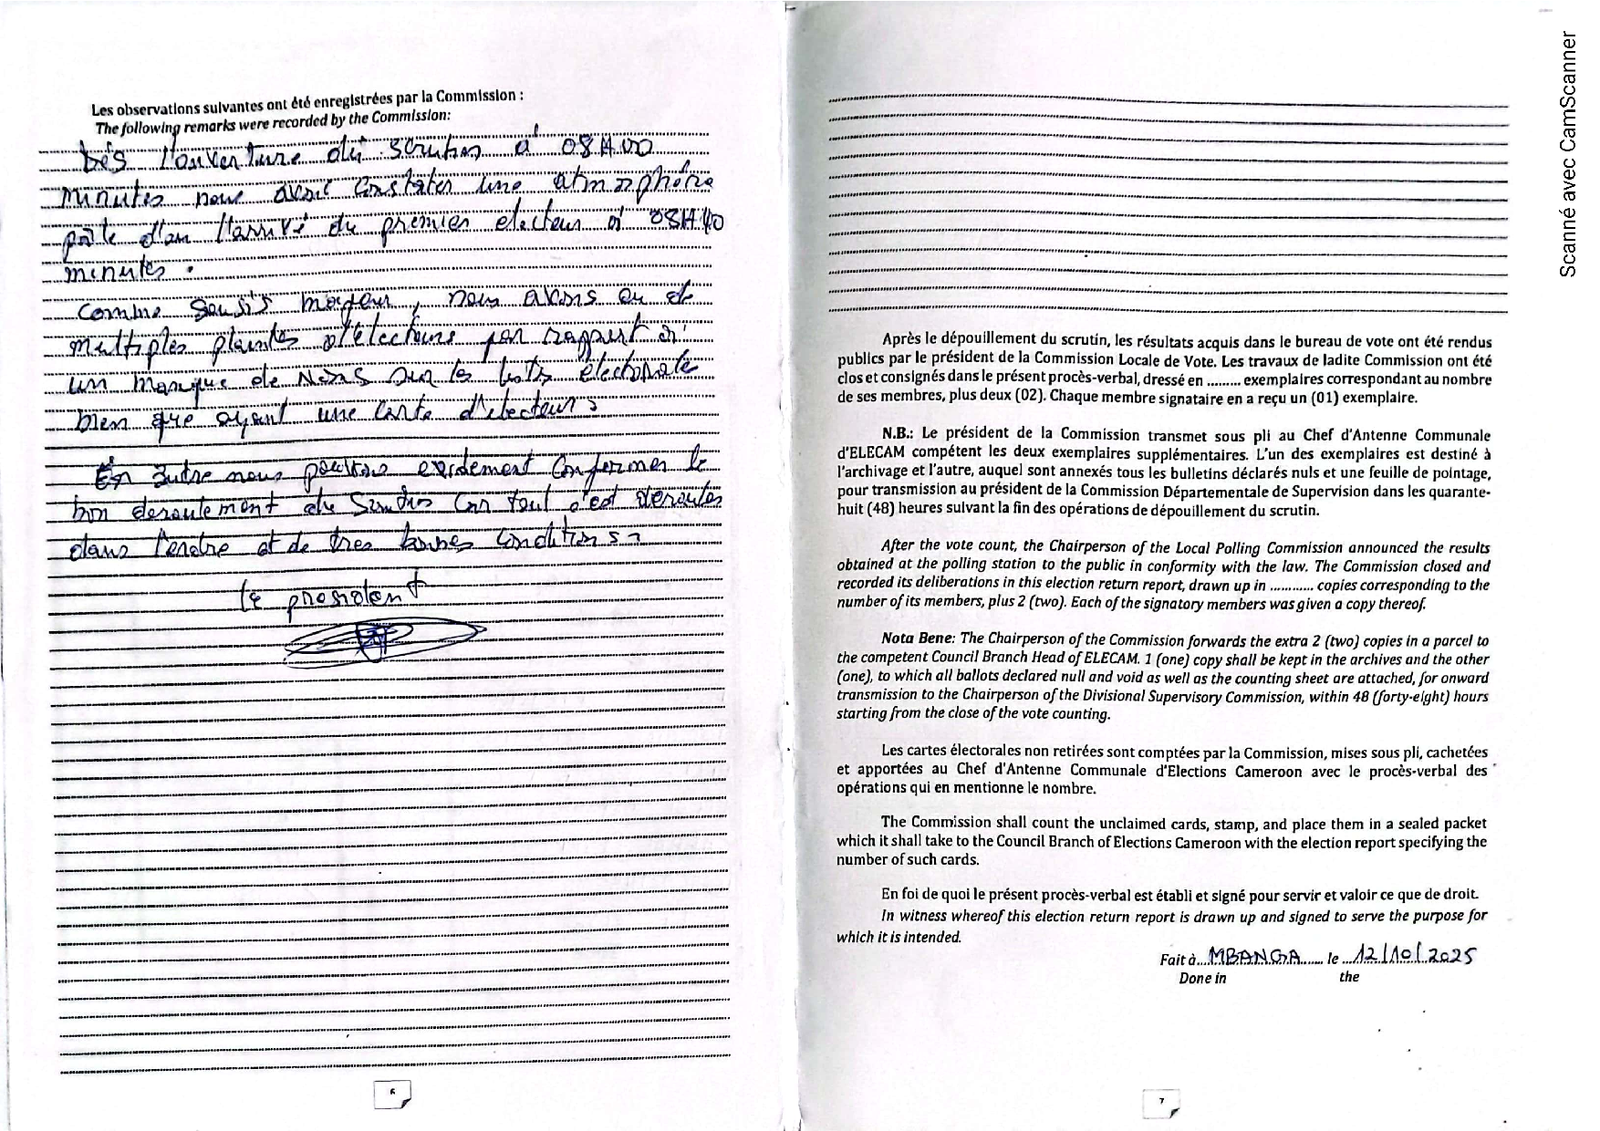 Les observations suivantes ont été enregistrées par la Commission :
The following remarks were recorded by the Commission:
Dés l'ouverture du scrutin à 08H00
minutes nous avons constater une atmosphére
d'un l'arrivé du premier electeur à 08H40
minutes.
Comme majeur, nous avons eu de
multiples plaintes d'électeurs par rapport à
un manque de Noms sur les listes électorale
bien que ayant une carte d'electeurs
En outre nous pouvons evidement confirmer le
bon deroulement du Scrutin car tout c'est derouler
dans l'ordre et de tres bonnes conditions
le president
6
Après le dépouillement du scrutin, les résultats acquis dans le bureau de vote ont été rendus
publics par le président de la Commission Locale de Vote. Les travaux de ladite Commission ont été
clos et consignés dans le présent procès-verbal, dressé en ......... exemplaires correspondant au nombre
de ses membres, plus deux (02). Chaque membre signataire en a reçu un (01) exemplaire.
N.B.: Le président de la Commission transmet sous pli au Chef d'Antenne Communale
d'ELECAM compétent les deux exemplaires supplémentaires. L'un des exemplaires est destiné à
l'archivage et l'autre, auquel sont annexés tous les bulletins déclarés nuls et une feuille de pointage,
pour transmission au président de la Commission Départementale de Supervision dans les quarante-
huit (48) heures suivant la fin des opérations de dépouillement du scrutin.
After the vote count, the Chairperson of the Local Polling Commission announced the results
obtained at the polling station to the public in conformity with the law. The Commission closed and
recorded its deliberations in this election return report, drawn up in ............ copies corresponding to the
number of its members, plus 2 (two). Each of the signatory members was given a copy thereof.
Nota Bene: The Chairperson of the Commission forwards the extra 2 (two) copies in a parcel to
the competent Council Branch Head of ELECAM. 1 (one) copy shall be kept in the archives and the other
(one), to which all ballots declared null and void as well as the counting sheet are attached, for onward
transmission to the Chairperson of the Divisional Supervisory Commission, within 48 (forty-eight) hours
starting from the close of the vote counting.
Les cartes électorales non retirées sont comptées par la Commission, mises sous pli, cachetées
et apportées au Chef d'Antenne Communale d'Elections Cameroon avec le procès-verbal des
opérations qui en mentionne le nombre.
The Commission shall count the unclaimed cards, stamp, and place them in a sealed packet
which it shall take to the Council Branch of Elections Cameroon with the election report specifying the
number of such cards.
En foi de quoi le présent procès-verbal est établi et signé pour servir et valoir ce que de droit.
In witness whereof this election return report is drawn up and signed to serve the purpose for
which it is intended.
Fait à MBANGA le 12/10/2025
Done in the
7
Scanné avec CamScanner